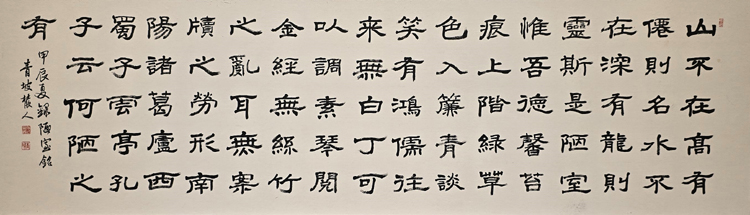 山不在高有
僊則名水不
在深有龍則
靈斯是陋室
惟吾德馨苔
痕上階綠草
色入簾青談
笑有鴻儒往
来無白丁可
以調素琴閱
金經無絲竹
之亂耳無案
牘之勞形南
陽諸葛廬西
蜀子雲亭孔
子云何陋之
有
甲辰夏錄陋室銘
青坡人